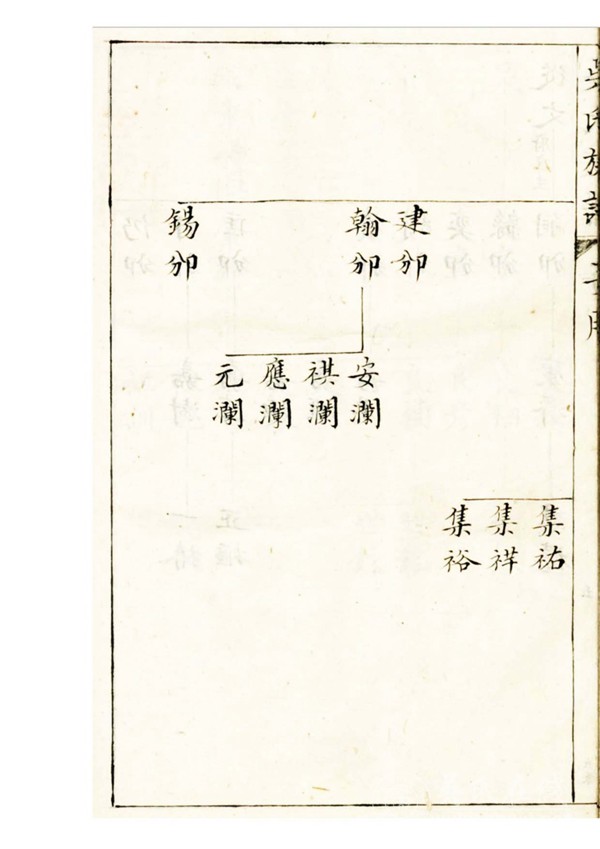 吳氏族譜
建夘
翰夘
錫夘
安瀾
祺瀾
應瀾
元瀾
集祐
集祥
集裕